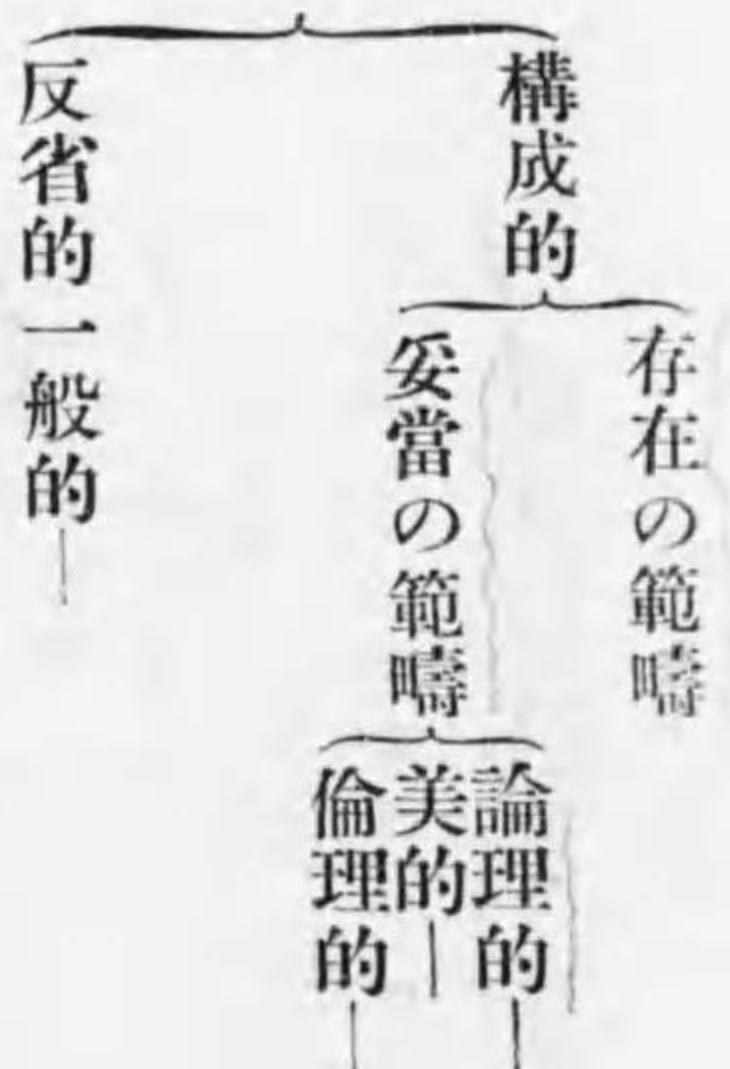 構成的
存在の範疇
妥當の範疇
論理的
美的
倫理的
反省的一般的